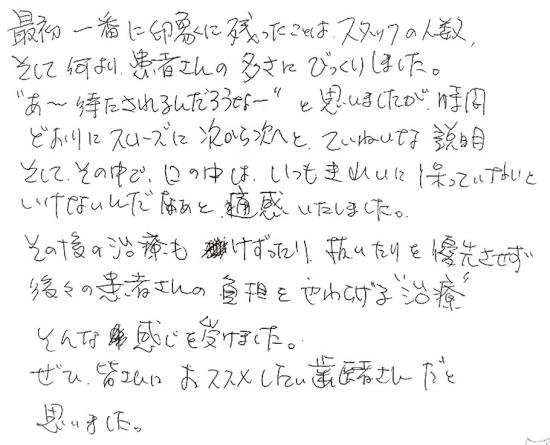 最初一番に印象に残ったことは、スタッフの人数、
そして何より、患者さんの多さにびっくりしました。
"あ～待たされるんだろうな～"と思いましたが、時間
どおりにスムーズに次から次へと、ていねいな説明
そして、その中で、口の中は、いつもきれいに保っていないと
いけないんだなぁと、痛感いたしました。
その後の治療も けずったり、抜いたりを優先させず
後々の患者さんの負担をやわらげる"治療"
そんな感じを受けました。
ぜひ、皆さんにおススメしたい歯医者さんだと
思いました。